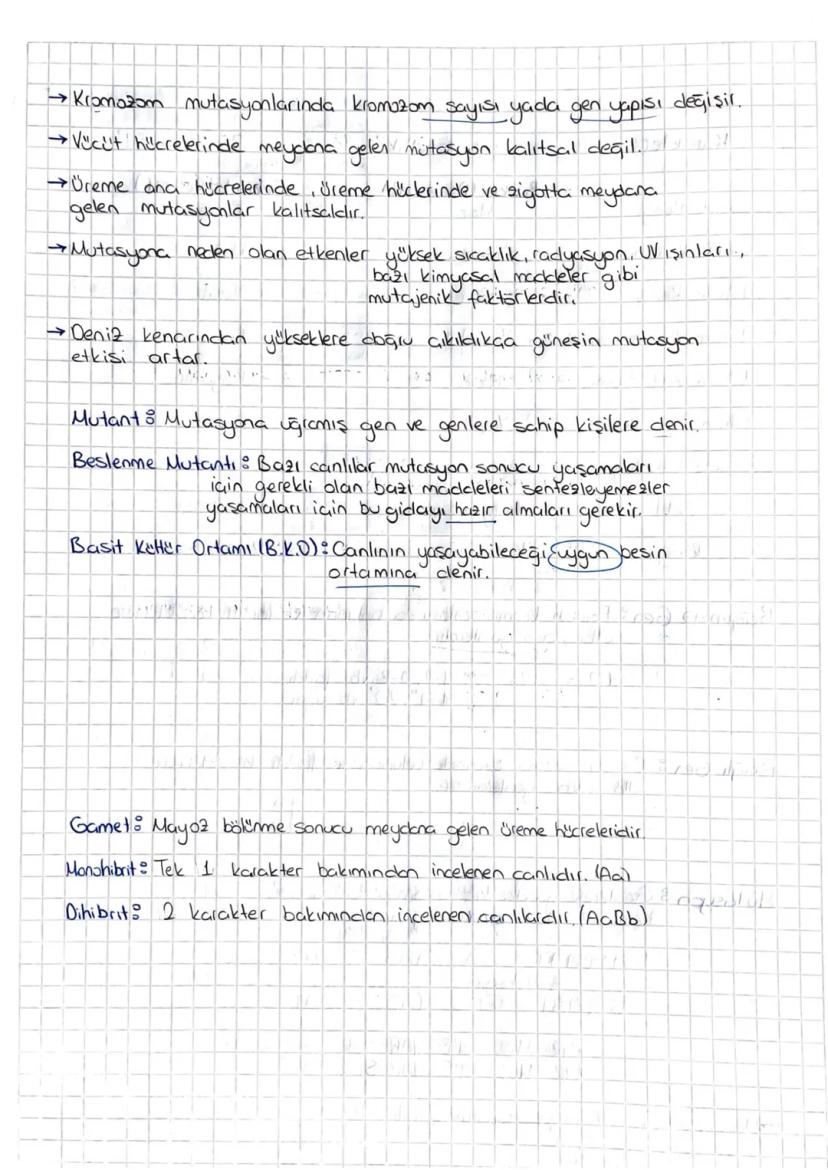 → Kromozom mutasyonlarında kromozom sayısı yada gen yapısı değişir.
→ Vücüt hücrelerinde meydana gelen mutasyon kalıtsal değil.
→ Üreme ana hücrelerinde, üreme hüclerinde ve zigotta meydana
gelen mutasyonlar kalıtsaldır.
→ Mutasyona neden olan etkenler yüksek sıcaklık, radyasyon, UV ışınları,
bazı kimyasal maddeler gibi
mutajenik faktörlerdir.
→ Deniz kenarından yükseklere doğru çıkıldıkça güneşin mutasyon
etkisi artar.
Mutant: Mutasyona uğramış gen ve genlere sahip kişilere denir.
Beslenme Mutantı: Bazı canlılar mutasyon sonucu yaşamaları
için gerekli olan bazı maddeleri sentezleyemezler
yaşamaları için bu gıdayı hazır almaları gerekir.
Basit Kültür Ortamı (B.K.O): Canlının yaşayabileceği uygun besin
ortamına denir.
Gamet: Mayoz bölünme sonucu meydana gelen üreme hücreleridir.
Monohibrit: Tek 1 karakter bakımından incelenen canlıdır. (Aa)
Dihibrit: 2 karakter bakımından incelenen canlılardır. (AaBb)